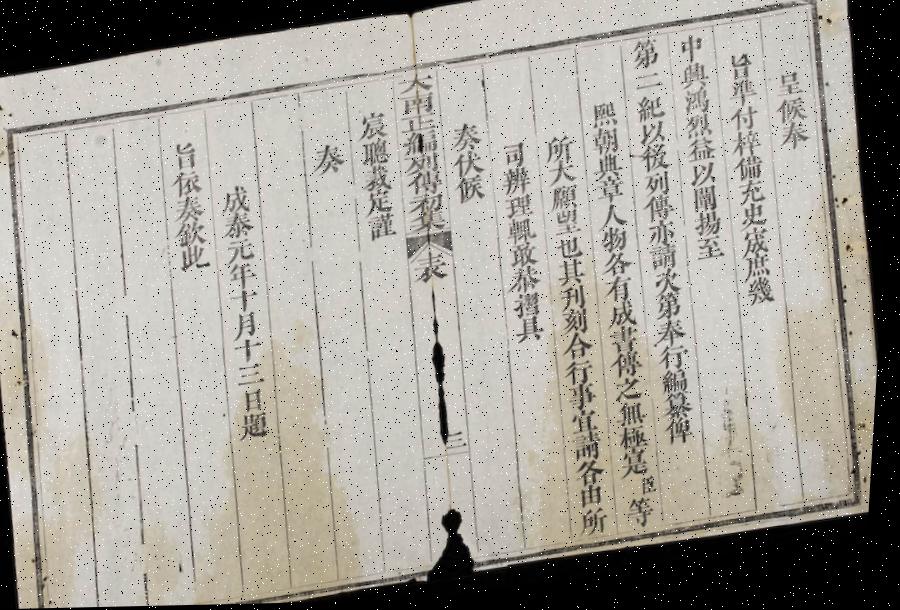 呈候奉
旨準付梓備充史宬庶幾
中興鴻烈益以闡揚至
第二紀以後列傳亦請次第奉行編纂俾
熙朝典章人物各有成書傳之無極寔臣等
所大願望也其刊刻合行事宜請各由所
司辦理輒敢恭摺具
奏伏候
大南正編列傳初集 表 三
宸聰裁定謹
奏
成泰元年十月十三日題
旨依奏欽此